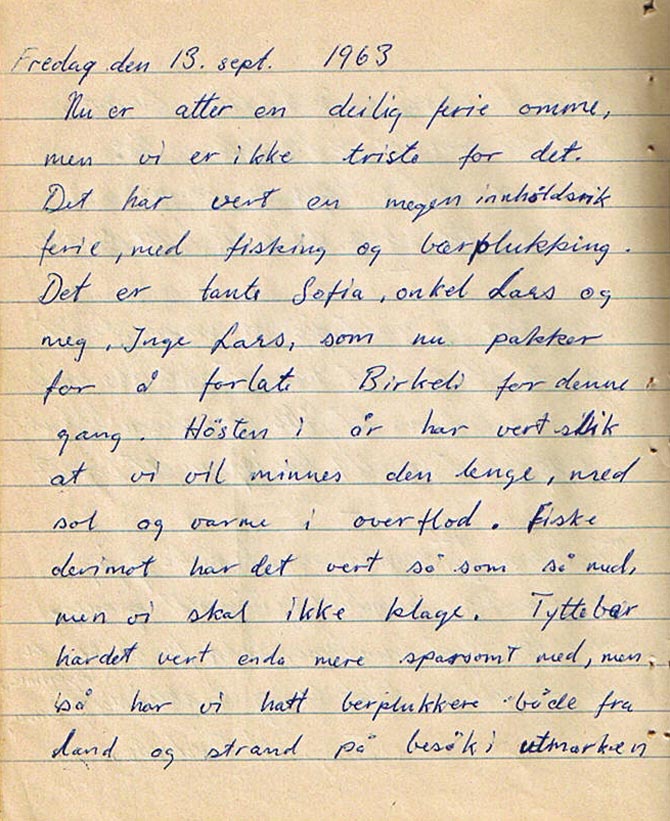 Fredag den 13. sept. 1963
Nu er atter en deilig ferie omme,
men vi er ikke triste for det.
Det har vert en megen innholdsrik
ferie, med fisking og bærplukking.
Det er tante Sofia, onkel Lars og
meg, Inge Lars, som nu pakker
for å forlate Birkeli for denne
gang. Hösten i år har vert slik
at vi vil minnes den lenge, med
sol og varme i overflod. Fiske
derimot har det vert så som så med,
men vi skal ikke klage. Tyttebær
har det vert enda mere sparsomt med, men
så har vi hatt berplukkere både fra
land og strand på besök i utmarken